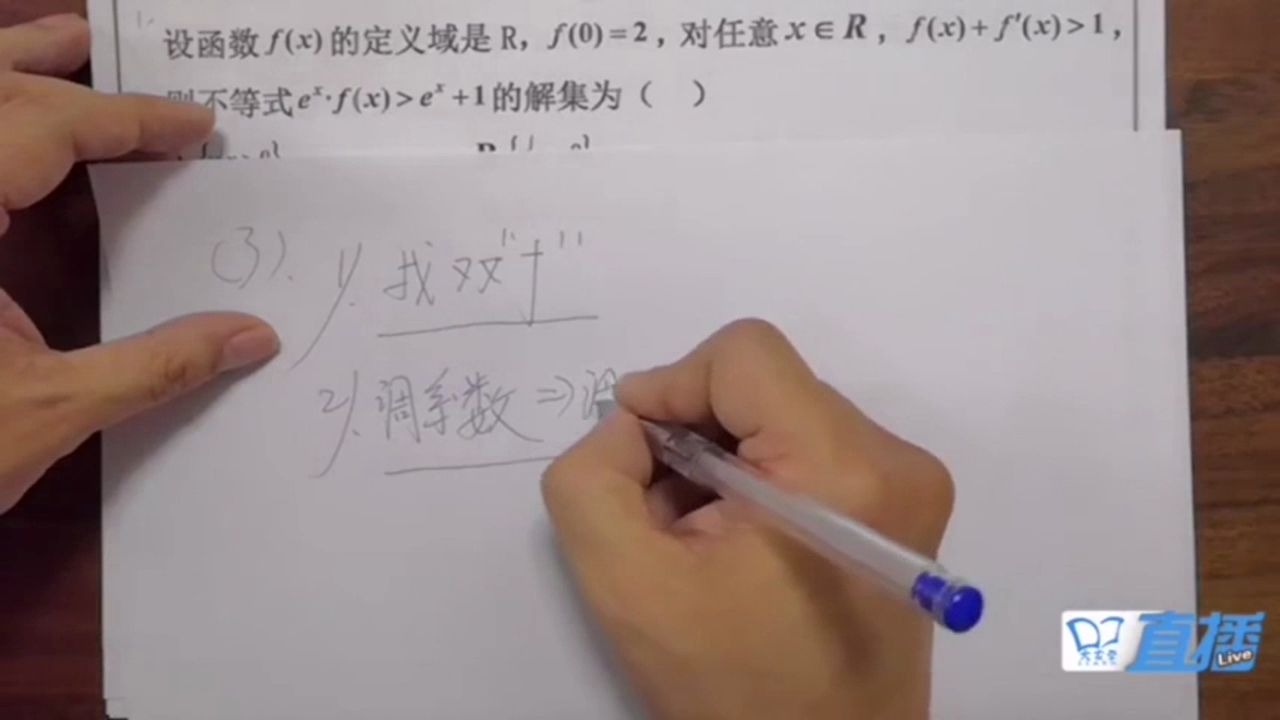 设函数 f(x) 的定义域是 R，f(0)=2，对任意 x∈R，f(x)+f'(x)>1，
则不等式 eˣ·f(x)>eˣ+1 的解集为（ ）
(3). 1). 找双"f"
2). 调系数 ⇒ 调
直播
Live